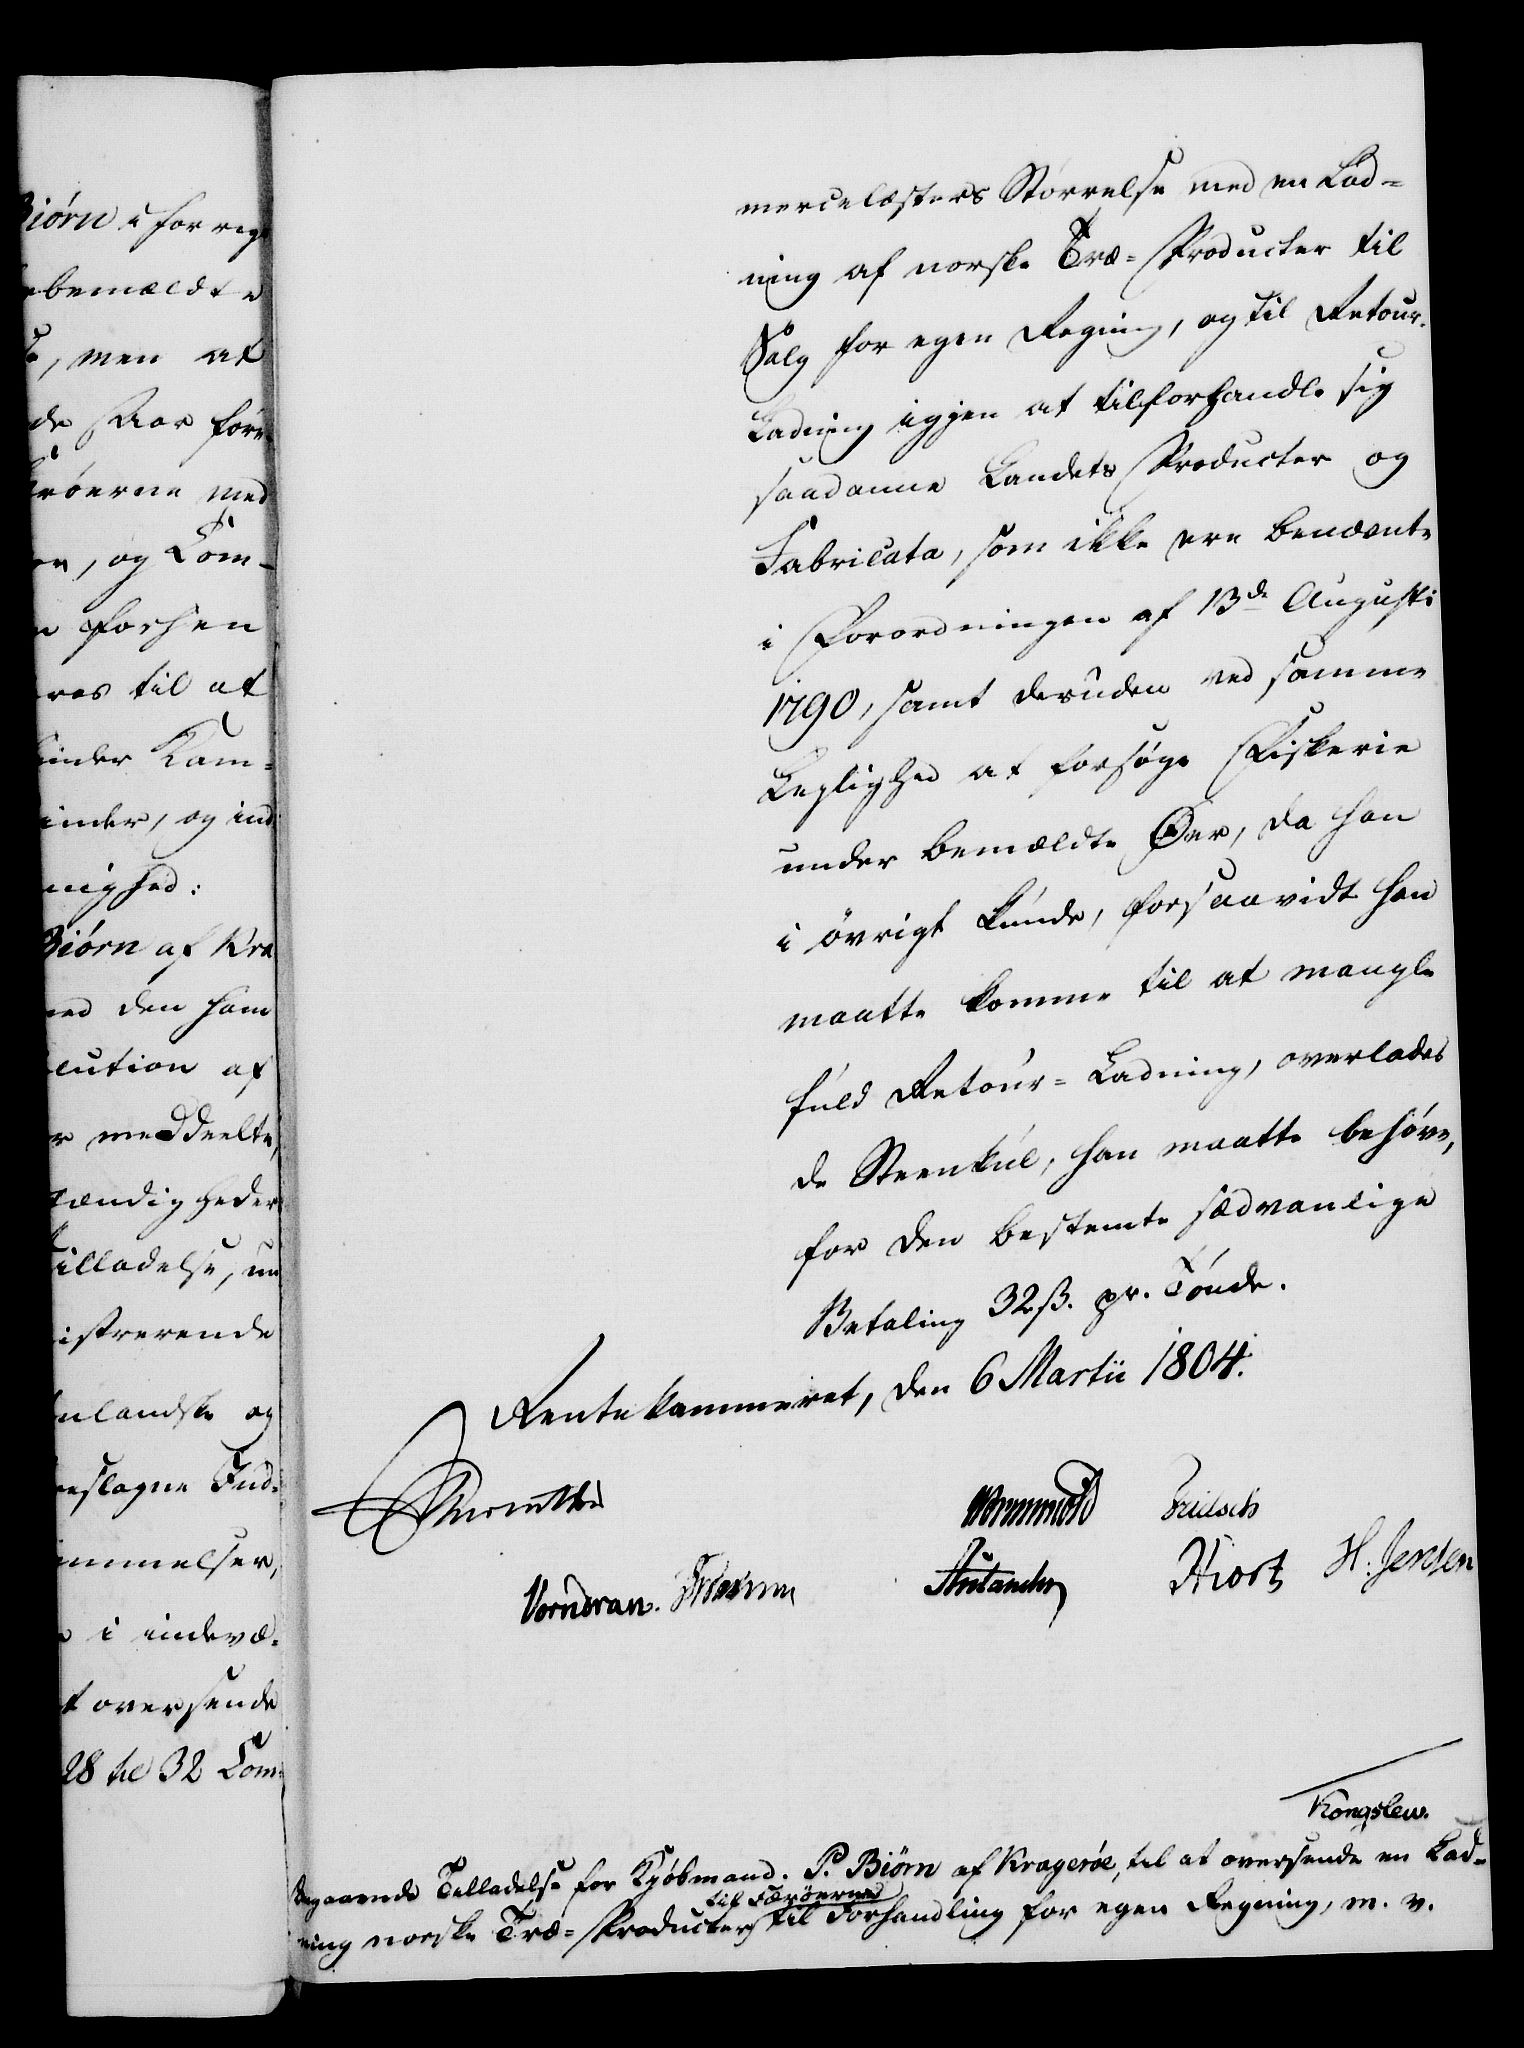 Biørn i forrige
bemældte
, men at
de Aar føre
røerne med
og Com-
forhen
res til at
inder Kam-
inder, og ind
nighed:
Biørn af Kra
med den ham
lution af
meddeelte,
tændigheder
illadelse, un
istrerende
nlandske og
eslagne Ind-
mmelser,
i indevæ-
t oversende
28 til 32 Com-
mercelæsters Størrelse med en Lad-
ning af norske Træ-Producter til
Salg for egen Regning, og til Retour-
Ladning igjen at tilforhandle sig
saadanne Landets Producter og
Fabricata, som ikke ere benævnte
i Forordningen af 13de Augusti
1790, samt desuden ved samme
Leylighed at forsøge Fiskerie
under bemældte Øer, da han
i øvrigt kunde, forsaavidt han
maatte komme til at mangle
fuld Retour-Ladning, overlades
de Steenkul, han maatte behøve,
for den bestemte sædvanlige
Betaling 32 ß. pr. Tønde.
Rentekammeret, den 6 Martii 1804.
Reventlow
Wormskiold
Vorndran.
Hiort
H. Jensen
Kongslew.
Angaaende Tilladelse for Kjøbmand P. Biørn af Kragerøe, til at oversende en Lad-
til Færøerne
ning norske Træ-Producter til Forhandling for egen Regning, m. v.